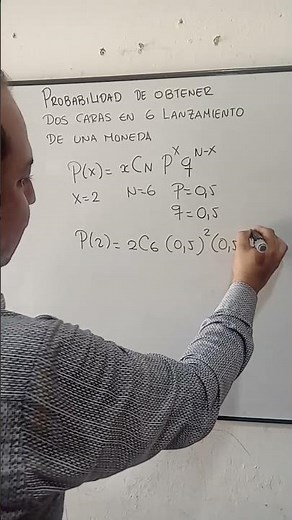 PROBABILIDAD DE OBTENER
DOS CARAS EN 6 LANZAMIENTO
DE UNA MONEDA
P(x) = xCN P^x q^(N-x)
X=2 N=6 P=0,5
q=0,5
P(2) = 2C6 (0,5)^2 (0,5